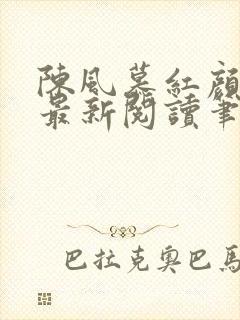 陳風慕紅顏
最新閱讀筆
巴拉克奧巴馬